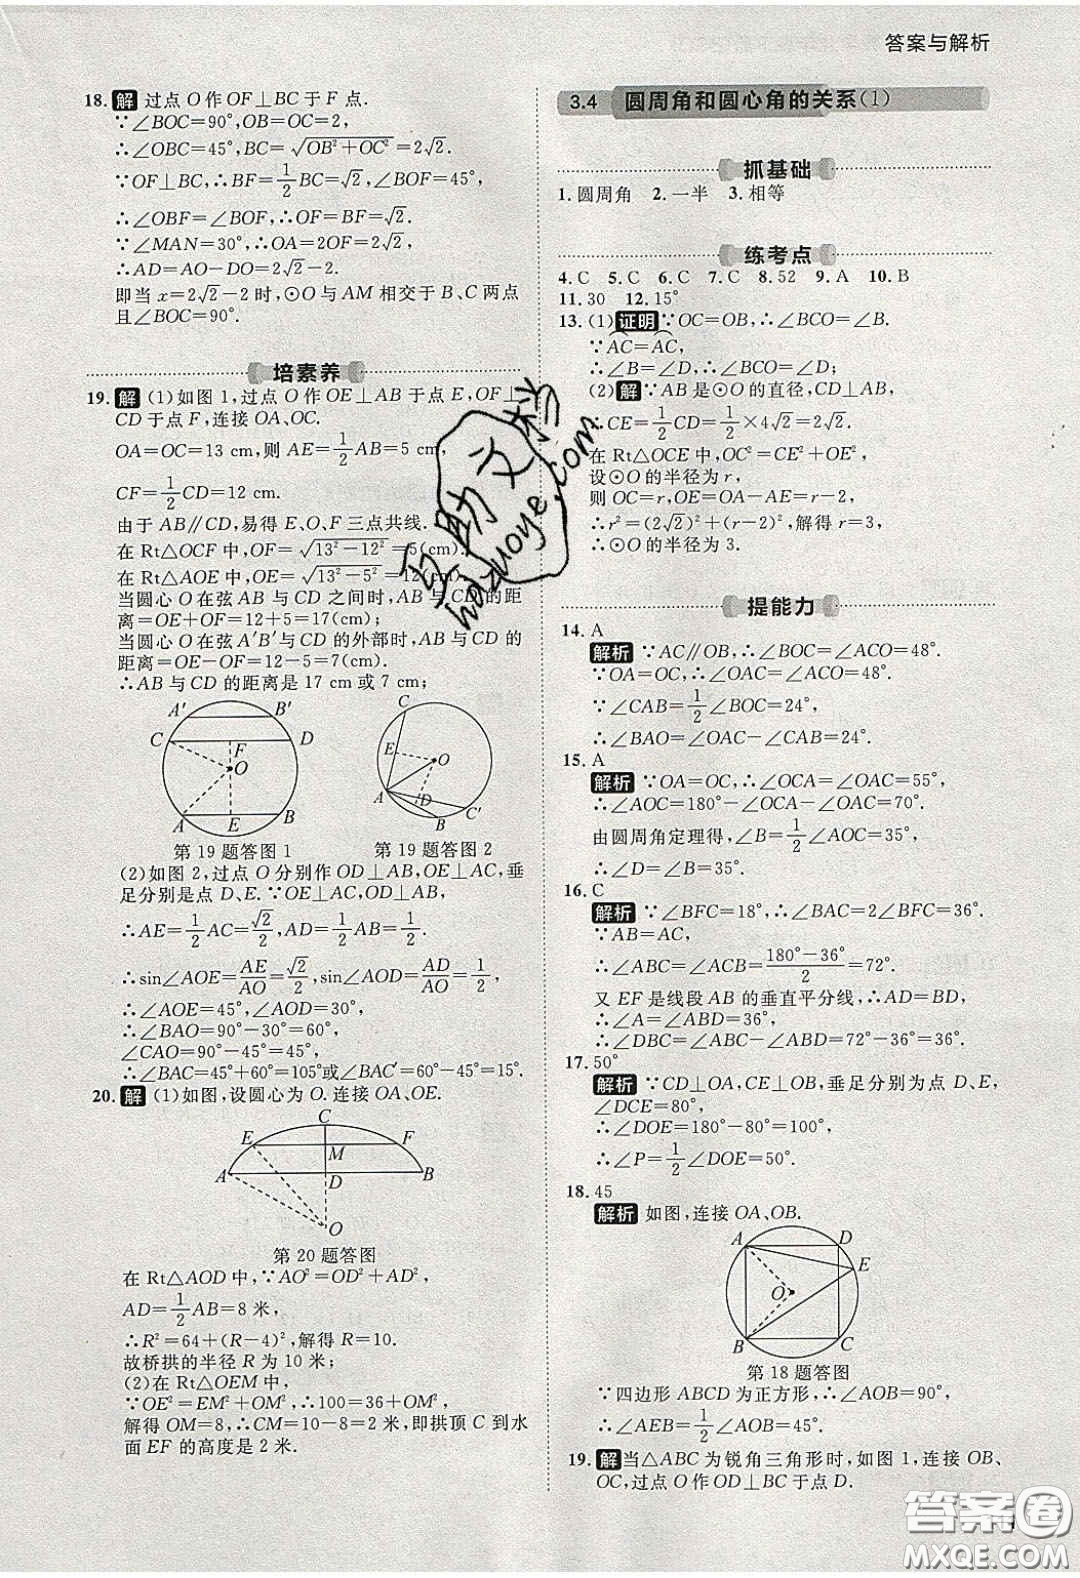 答案与解析
18. 解 过点 O 作 OF⊥BC 于 F 点.
∵∠BOC=90°,OB=OC=2,
∴∠OBC=45°,BC=√(OB²+OC²)=2√2.
∵OF⊥BC,∴BF=1/2BC=√2,∠BOF=45°,
∴∠OBF=∠BOF,∴OF=BF=√2.
∵∠MAN=30°,∴OA=2OF=2√2,
∴AD=AO-DO=2√2-2.
即当 x=2√2-2 时,⊙O 与 AM 相交于 B、C 两点
且∠BOC=90°.
培素养
19. 解 (1)如图 1,过点 O 作 OE⊥AB 于点 E,OF⊥
CD 于点 F,连接 OA、OC.
OA=OC=13 cm,则 AE=1/2AB=5 cm,
CF=1/2CD=12 cm.
由于 AB∥CD,易得 E、O、F 三点共线.
在 Rt△OCF 中,OF=√(13²-12²)=5(cm).
在 Rt△AOE 中,OE=√(13²-5²)=12(cm)
当圆心 O 在弦 AB 与 CD 之间时,AB 与 CD 的距
离=OE+OF=12+5=17(cm);
当圆心 O 在弦 A′B′与 CD 的外部时,AB 与 CD 的
距离=OE-OF=12-5=7(cm).
∴AB 与 CD 的距离是 17 cm 或 7 cm;
A′ B′ C D F O A E B
C E O A D B C′
第 19 题答图 1 第 19 题答图 2
(2)如图 2,过点 O 分别作 OD⊥AB,OE⊥AC,垂
足分别是点 D、E.∵OE⊥AC,OD⊥AB,
∴AE=1/2AC=√2/2,AD=1/2AB=1/2,
∴sin∠AOE=AE/AO=√2/2,sin∠AOD=AD/AO=1/2,
∴∠AOE=45°,∠AOD=30°.
∴∠BAO=90°-30°=60°,
∠CAO=90°-45°=45°,
∴∠BAC=45°+60°=105°或∠BAC′=60°-45°=15°.
20. 解 (1)如图,设圆心为 O.连接 OA、OE.
C E M F A D B O
第 20 题答图
在 Rt△AOD 中,∵AO²=OD²+AD²,
AD=1/2AB=8 米,
∴R²=64+(R-4)²,解得 R=10.
故桥拱的半径 R 为 10 米;
(2)在 Rt△OEM 中,
∵OE²=EM²+OM²,∴100=36+OM²,
解得 OM=8,∴CM=10-8=2 米,即拱顶 C 到水
面 EF 的高度是 2 米.
3.4 圆周角和圆心角的关系(1)
抓基础
1.圆周角 2.一半 3.相等
练考点
4. C 5. C 6. C 7. C 8. 52 9. A 10. B
11. 30 12. 15°
13. (1)证明 ∵OC=OB,∴∠BCO=∠B.
∵AC=AC,
∴∠B=∠D,∴∠BCO=∠D;
(2)解 ∵AB 是⊙O 的直径,CD⊥AB,
∴CE=1/2CD=1/2×4√2=2√2.
在 Rt△OCE 中,OC²=CE²+OE²,
设⊙O 的半径为 r,
则 OC=r,OE=OA-AE=r-2,
∴r²=(2√2)²+(r-2)²,解得 r=3,
∴⊙O 的半径为 3.
提能力
14. A
解析 ∵AC∥OB,∴∠BOC=∠ACO=48°.
∵OA=OC,∴∠OAC=∠ACO=48°.
∵∠CAB=1/2∠BOC=24°,
∴∠BAO=∠OAC-∠CAB=24°.
15. A
解析 ∵OA=OC,∴∠OCA=∠OAC=55°,
∴∠AOC=180°-∠OCA-∠OAC=70°.
由圆周角定理得,∠B=1/2∠AOC=35°,
∴∠D=∠B=35°.
16. C
解析 ∵∠BFC=18°,∴∠BAC=2∠BFC=36°.
∵AB=AC,
∴∠ABC=∠ACB=(180°-36°)/2=72°.
又 EF 是线段 AB 的垂直平分线,∴AD=BD,
∴∠A=∠ABD=36°,
∴∠DBC=∠ABC-∠ABD=72°-36°=36°.
17. 50°
解析 ∵CD⊥OA,CE⊥OB,垂足分别为点 D、E,
∠DCE=80°,
∴∠DOE=180°-80°=100°,
∴∠P=1/2∠DOE=50°.
18. 45
解析 如图,连接 OA、OB.
A D E O B C
第 18 题答图
∵四边形 ABCD 为正方形,∴∠AOB=90°,
∴∠AEB=1/2∠AOB=45°.
19. 解 当△ABC 为锐角三角形时,如图 1,连接 OB、
OC,过点 O 作 OD⊥BC 于点 D.
答案圈
MXQE.COM
hzuoye.com